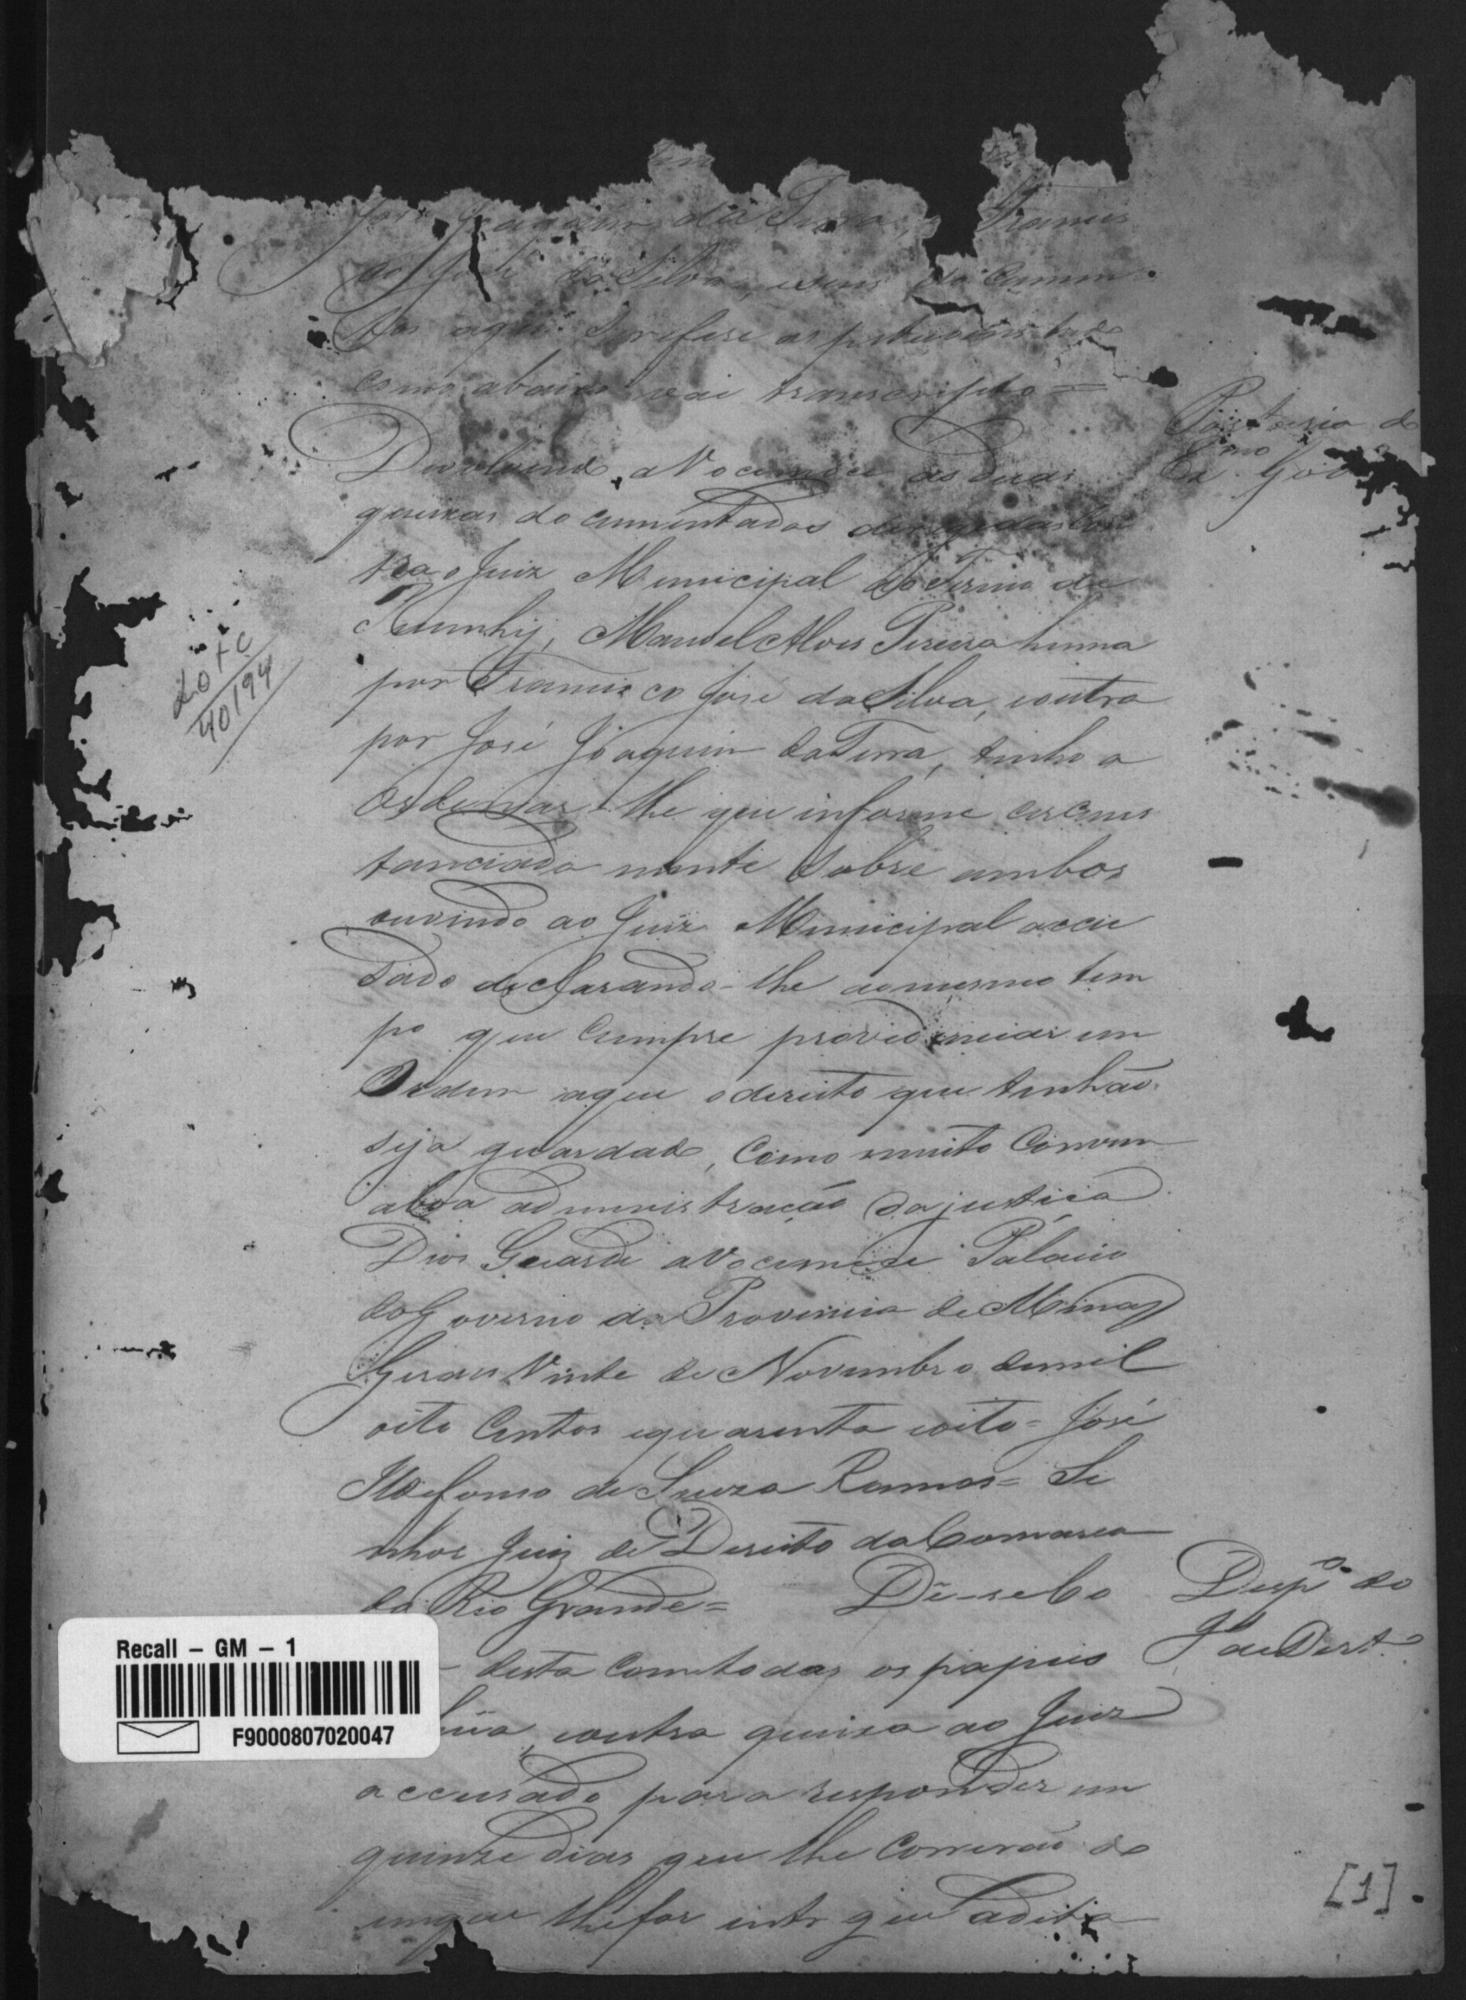 José Joaquim da Terra, Francis
co José da Silva, e seus documen
tos aque se refere
como abaixo vai transcripto =
Portaria do
Ex.mo Gov
Devolvend a Vocemece as duas
queixas documentadas dirigidas Con
tra o Juiz Municipal do Termo de
Piumhij, Manoel Alves Pereira huma
por Francisco José da Silva, eoutra
por José Joaquim da Terra, tenho a
Ordenar-lhe que informe circuns
tanciada mente Sobre ambos
ouvindo ao Juiz Municipal accu
sado declarando-lhe ao mesmo tem
po que Cumpre providenciar em
Ordem aque o direito que tenhão
seja guardado, Como muito Convem
aboa administração da justiça
Deos Guarde a Vocemece Palacio
do Governo da Provincia de Minas
Geraes Vinte de Novembro demil
oito Centos equarenta eoito = José
Ildefonso de Souza Ramos = Se
nhor Juiz de Direito da Comarca
do Rio Grande = Dê-se Co
Desp.o do
J de Dirt.o
desta Com todas os papeis
eoutra queixa ao Juiz
accusado para responder em
quinze dias que lhe Correrão do
emque lhe for entregue adita
Lote
40/94
Recall – GM – 1
F9000807020047
[1]